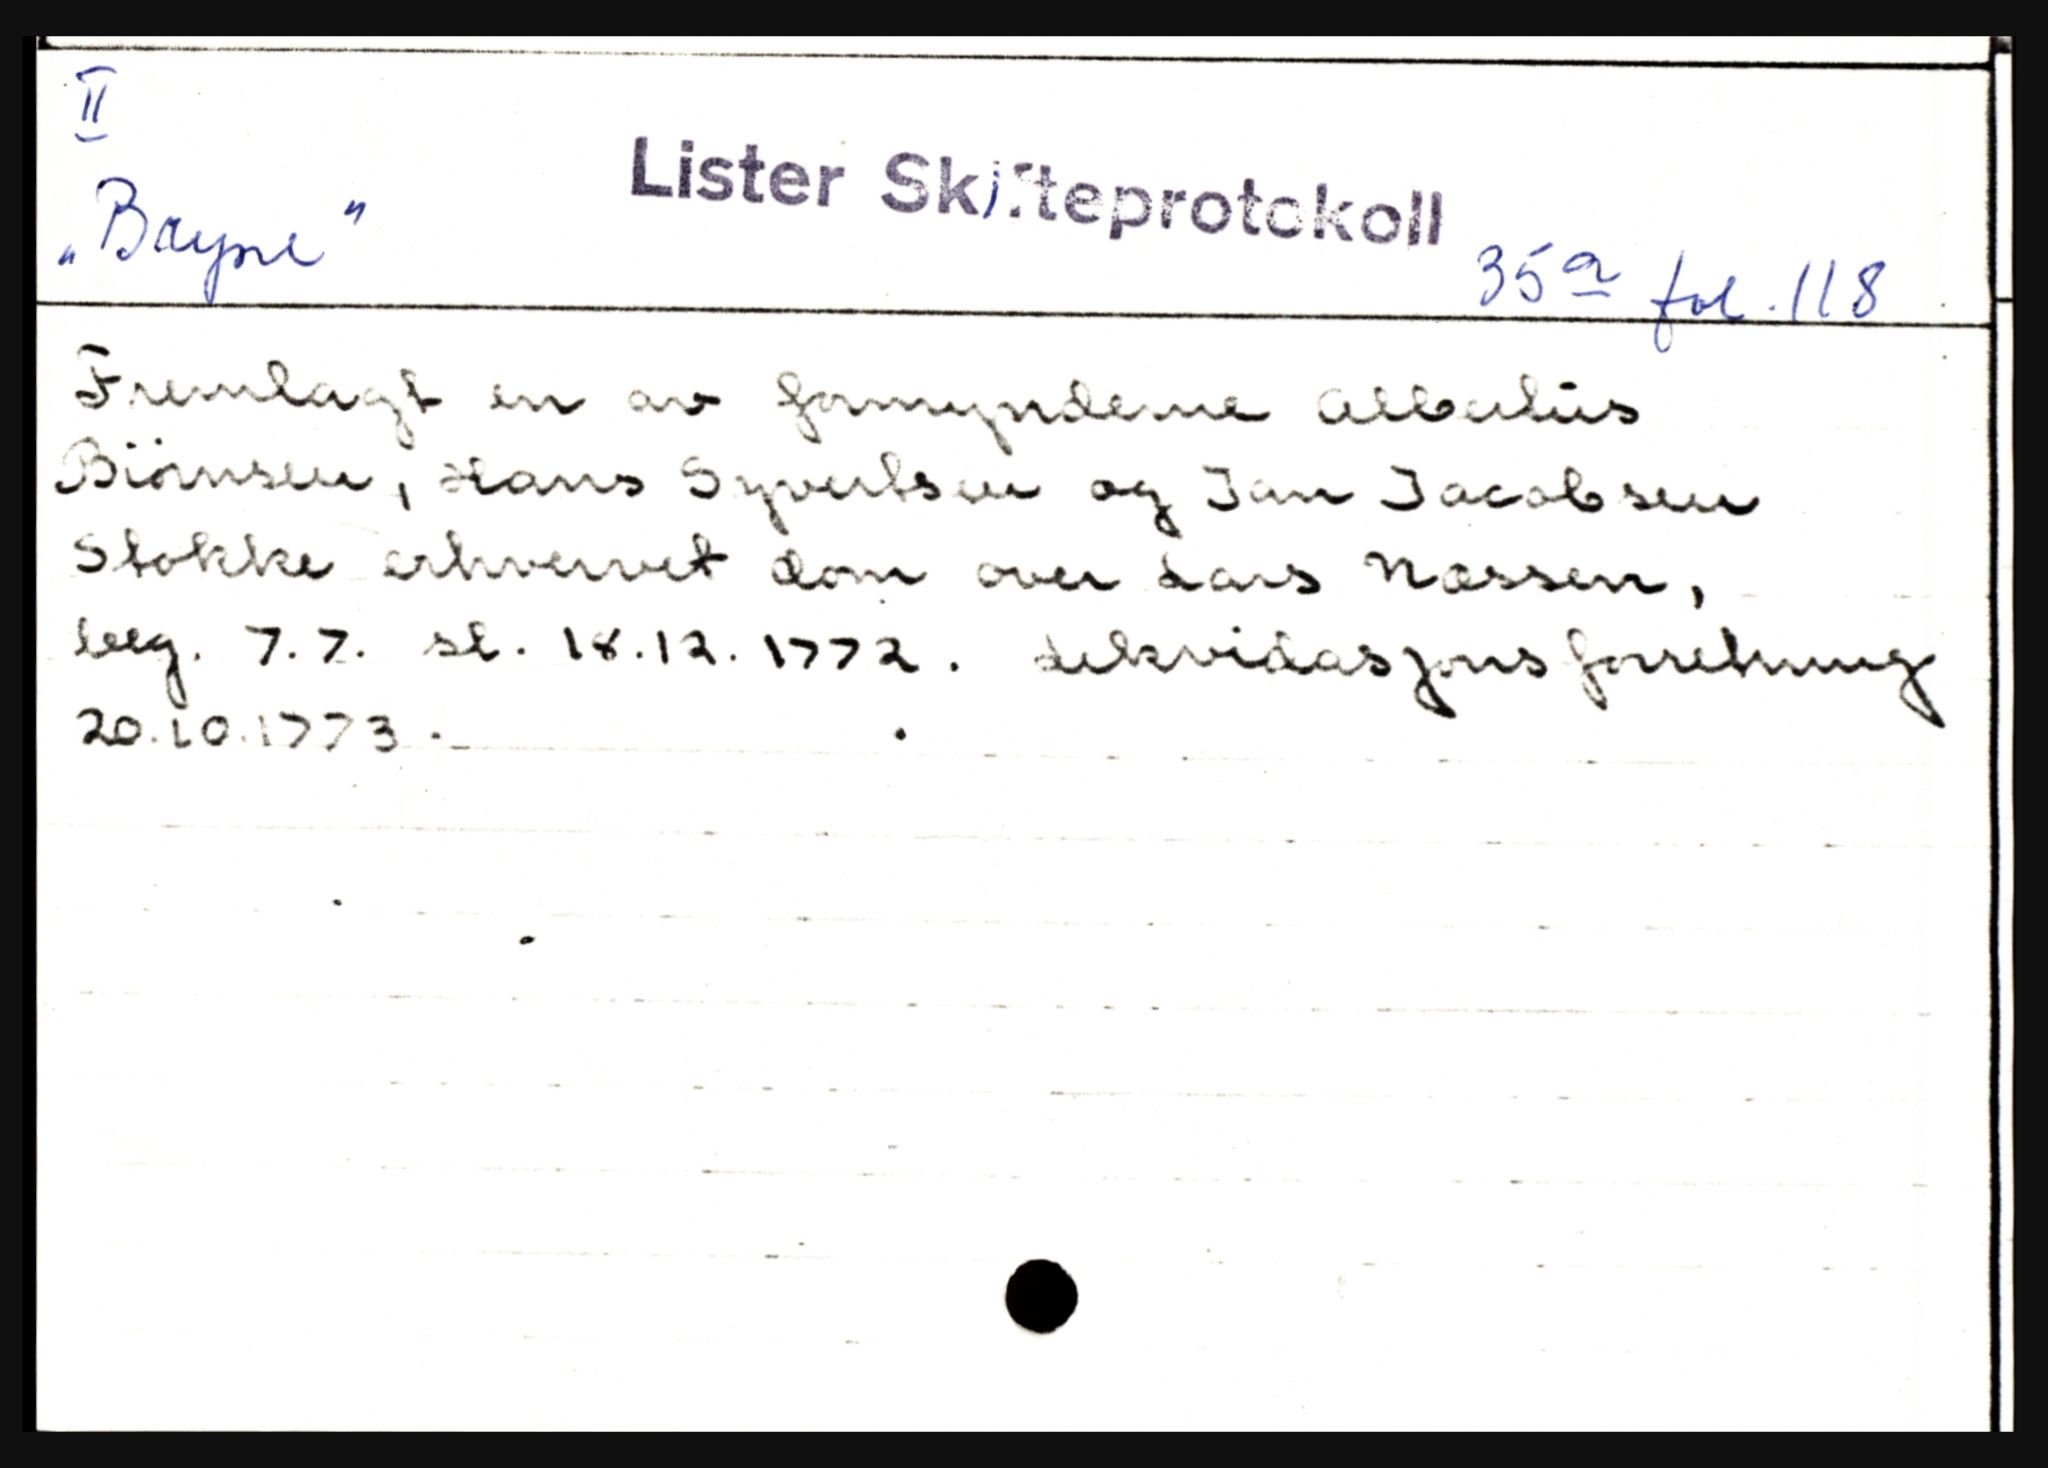 II
Lister Skifteprotokoll
„Bayne"
35a fol. 118
Fremlagt en av formynderne Albertus
Biörnsen, Hans Syvertsen og Jan Jacobsen
Stokke erhvervet dom over Lars Nossen,
beg. 7.7. sl. 18.12.1772. Likvidasjonsforretning
20.10.1773.